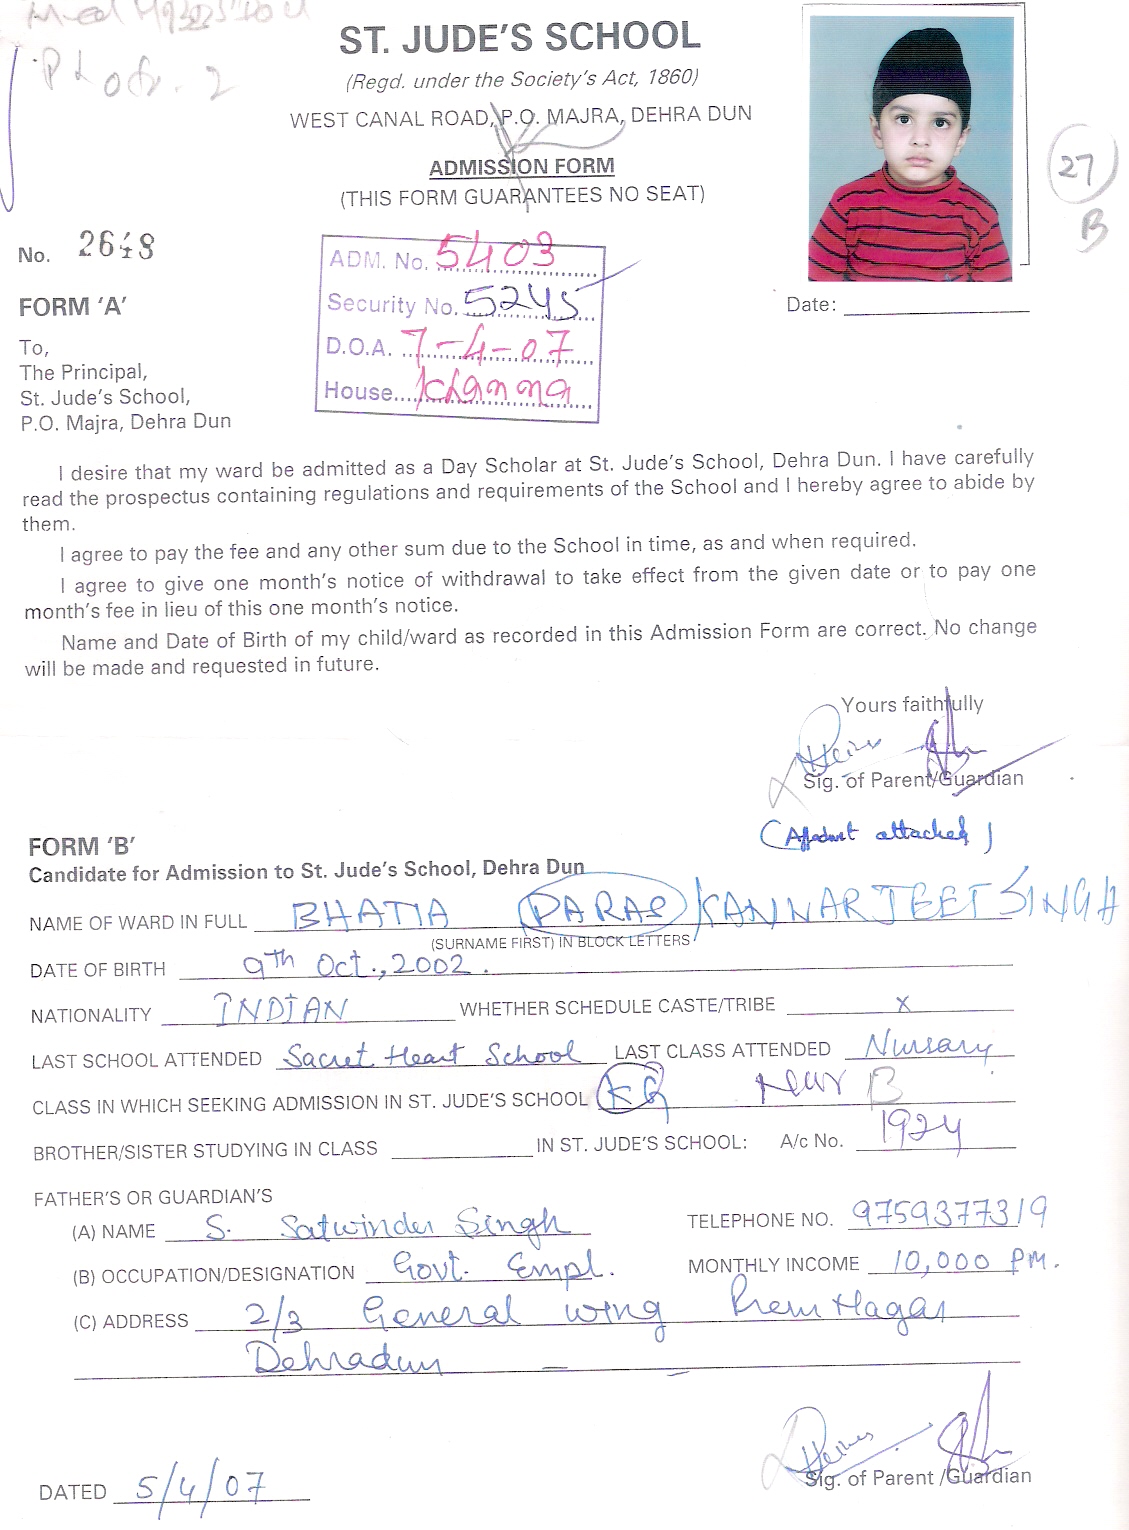 Phot. 2
ST. JUDE'S SCHOOL
(Regd. under the Society's Act, 1860)
WEST CANAL ROAD, P.O. MAJRA, DEHRA DUN
ADMISSION FORM
(THIS FORM GUARANTEES NO SEAT)
27
B
No. 2648
ADM. No. 5403
Security No. 5245
D.O.A. 7-4-07
House Khanna
Date:
FORM 'A'
To,
The Principal,
St. Jude's School,
P.O. Majra, Dehra Dun
I desire that my ward be admitted as a Day Scholar at St. Jude's School, Dehra Dun. I have carefully
read the prospectus containing regulations and requirements of the School and I hereby agree to abide by
them.
I agree to pay the fee and any other sum due to the School in time, as and when required.
I agree to give one month's notice of withdrawal to take effect from the given date or to pay one
month's fee in lieu of this one month's notice.
Name and Date of Birth of my child/ward as recorded in this Admission Form are correct. No change
will be made and requested in future.
Yours faithfully
Sig. of Parent/Guardian
attached)
FORM 'B'
Candidate for Admission to St. Jude's School, Dehra Dun
NAME OF WARD IN FULL BHATIA PARAS KANWARJEET SINGH
(SURNAME FIRST) IN BLOCK LETTERS
DATE OF BIRTH 9th Oct., 2002.
NATIONALITY INDIAN WHETHER SCHEDULE CASTE/TRIBE x
LAST SCHOOL ATTENDED Sacret Heart School LAST CLASS ATTENDED Nursary
CLASS IN WHICH SEEKING ADMISSION IN ST. JUDE'S SCHOOL KG Nur B
BROTHER/SISTER STUDYING IN CLASS IN ST. JUDE'S SCHOOL: A/c No. 1924
FATHER'S OR GUARDIAN'S
(A) NAME S. Satwinder Singh TELEPHONE NO. 9759377319
(B) OCCUPATION/DESIGNATION Govt. Empl. MONTHLY INCOME 10,000 PM.
(C) ADDRESS 2/3 General wing Prem Nagar
Dehradun
DATED 5/4/07
Sig. of Parent/Guardian